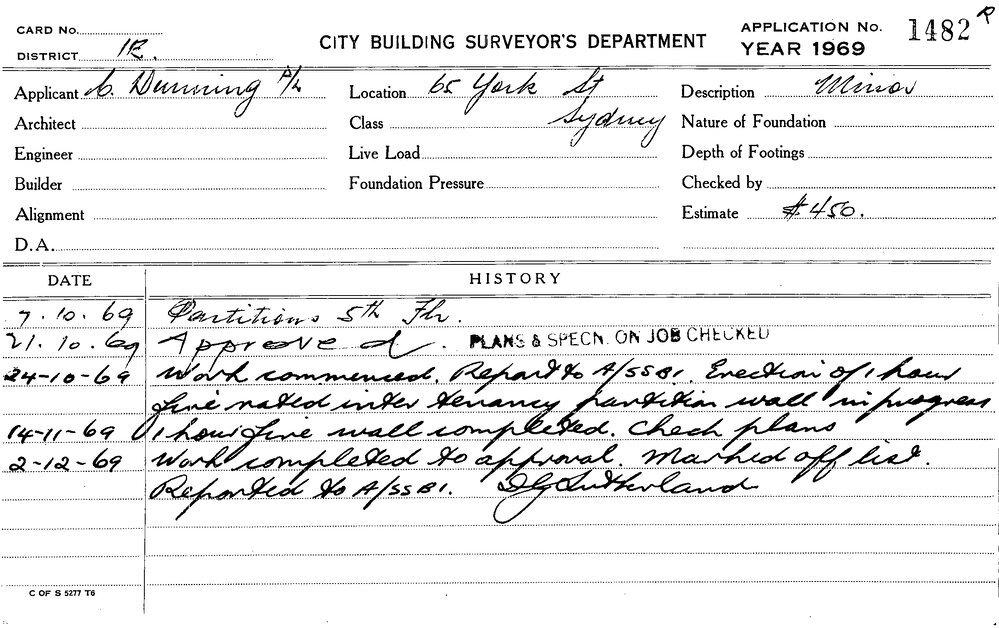 CARD No.
DISTRICT 1E.
CITY BUILDING SURVEYOR'S DEPARTMENT
APPLICATION No. 1482 R
YEAR 1969
Applicant C. Dunning P/L
Location 65 York St Sydney
Description Minor
Architect
Class
Nature of Foundation
Engineer
Live Load
Depth of Footings
Builder
Foundation Pressure
Checked by
Alignment
Estimate $450.
D.A.
DATE HISTORY
7.10.69 Partitions 5th Flr.
21.10.69 Approved. PLANS & SPECN. ON JOB CHECKED
24-10-69 Work commenced. Report to A/SSBI. Erection of 1 hour
fire rated inter tenancy partition wall in progress
14-11-69 1 hour fire wall completed. Check plans
2-12-69 Work completed to approval. Marked off list.
Reported to A/SSBI. Sutherland
C OF S 5277 T6